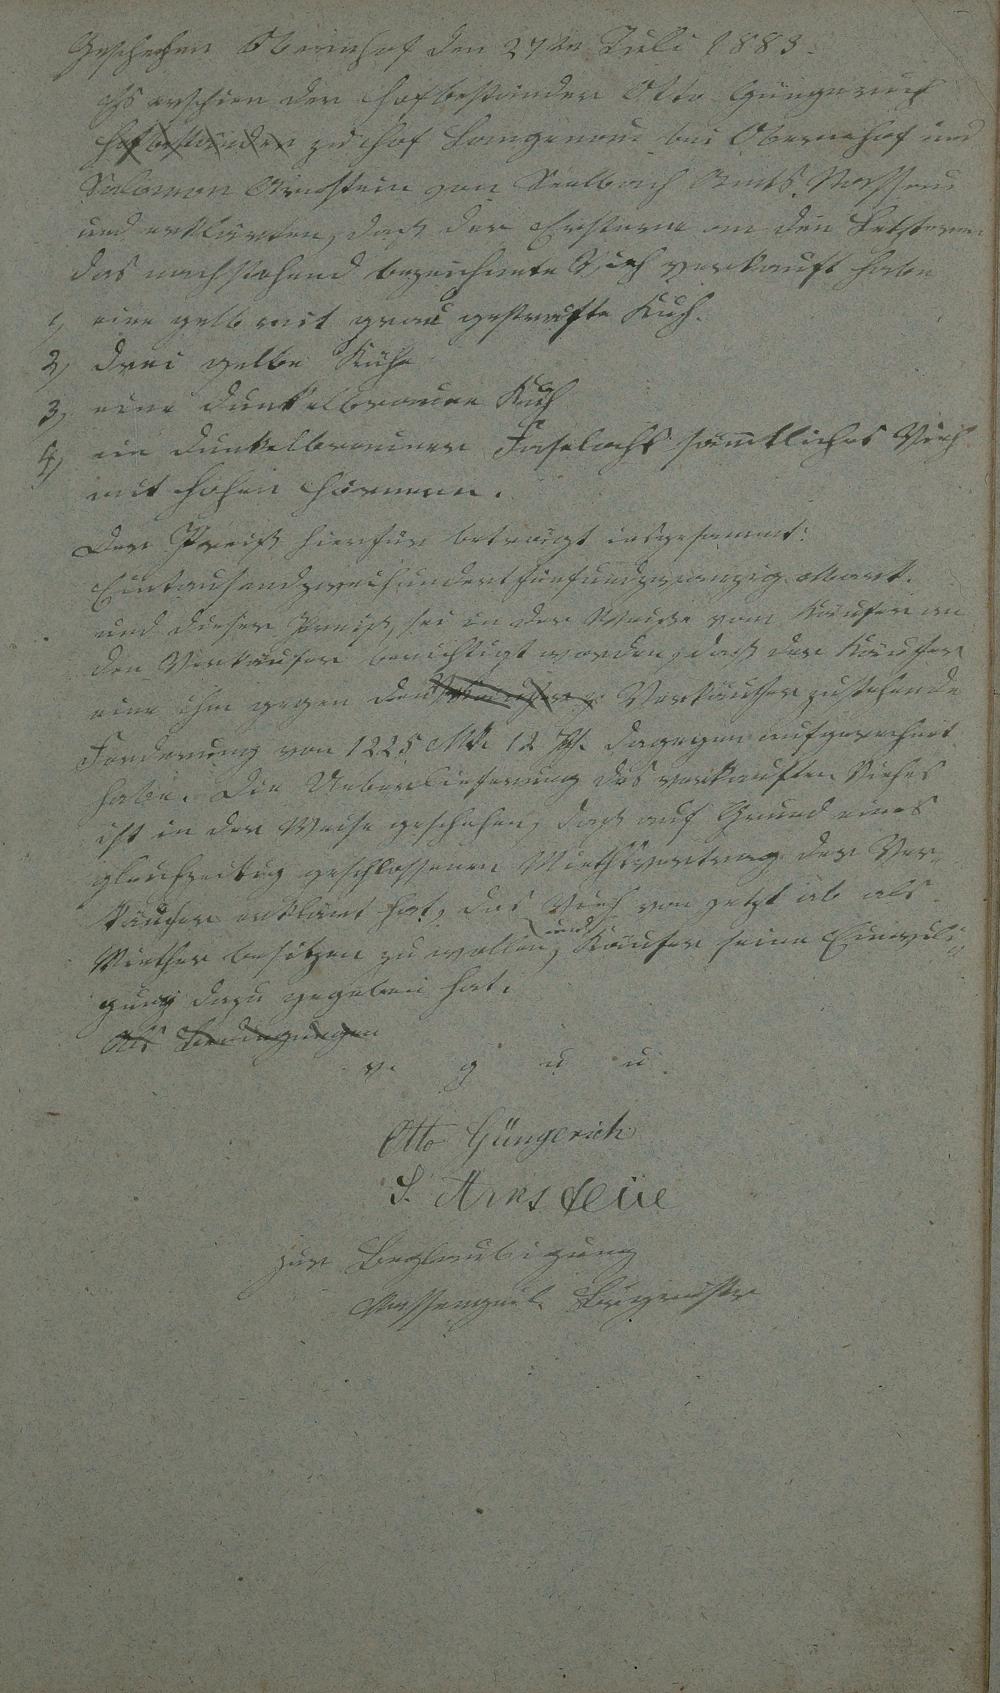 Geschehen Obernhof den 27ten Juli 1883.
Es erschien der Hofbeständer Otto Güngerich
Hofbeständer zu Hof Langenau bei Obernhof und
Salomon Arnstein von Seelbach Amts Nassau
und erklärten, daß der Erstere an den Letzteren
das nachstehend bezeichnete Vieh verkauft habe
1, eine gelb mit grau gestreifte Kuh.
2, drei gelbe Kühe
3, eine dunkelbraune Kuh
4, ein dunkelbrauner Faselochs sämtliches Vieh
mit hohen Hörnern.
Der Preiß hierfür beträgt insgesammt:
Eintausendzweihundertfünfundzwanzig Mark.
und dieser Preiß, sei in der Weise vom Käufer an
den Verkäufer berichtigt worden, daß der Käufer
eine ihm gegen den Verkäufer zustehende
Forderung von 1225 Mk. 12 Pf. dagegen aufgerechnet
habe. Die Ueberlieferung des verkauften Viehes
ist in der Weise geschehen, daß auf Grund eines
gleichzeitig geschlossenen Miethsvertrag der Ver-
käufer erklärt hat, das Vieh von jetzt ab als
Miether besitzen zu wollen, und Käufer seine Einwilli-
gung dazu gegeben hat.
Als Bedingungen
v. g. u. u.
Otto Güngerich
S. Arnstein
zur Beglaubigung
Bürgermstr